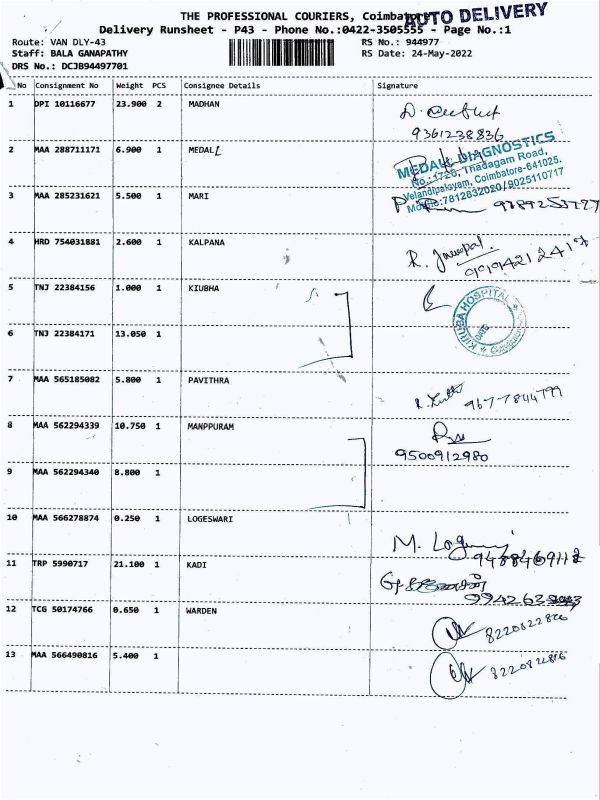 THE PROFESSIONAL COURIERS, Coimbatore
AUTO DELIVERY
Delivery Runsheet - P43 - Phone No.:0422-3505555 - Page No.:1
Route: VAN DLY-43 RS No.: 944977
Staff: BALA GANAPATHY RS Date: 24-May-2022
DRS No.: DCJB94497701
No Consignment No Weight PCS Consignee Details Signature
1 DPI 10116677 23.900 2 MADHAN
9361238836
2 MAA 288711171 6.900 1 MEDALL
MEDALL DIAGNOSTICS
No.:172B, Thadagam Road,
Velandipalayam, Coimbatore-641025.
Mobile:7812832020/9025110717
3 MAA 285231621 5.500 1 MARI
4 HRD 754031881 2.600 1 KALPANA
5 TNJ 22384156 1.000 1 KIUBHA
KIRUBA HOSPITAL
DATE
6 TNJ 22384171 13.050 1
7 MAA 565185082 5.800 1 PAVITHRA
9677844799
8 MAA 562294339 10.750 1 MANPPURAM
9500912980
9 MAA 562294340 8.800 1
10 MAA 566278874 0.250 1 LOGESWARI
M.
9488469112
11 TRP 5990717 21.100 1 KADI
12 TCG 50174766 0.650 1 WARDEN
8220822826
13 MAA 566490816 5.400 1
8220822826